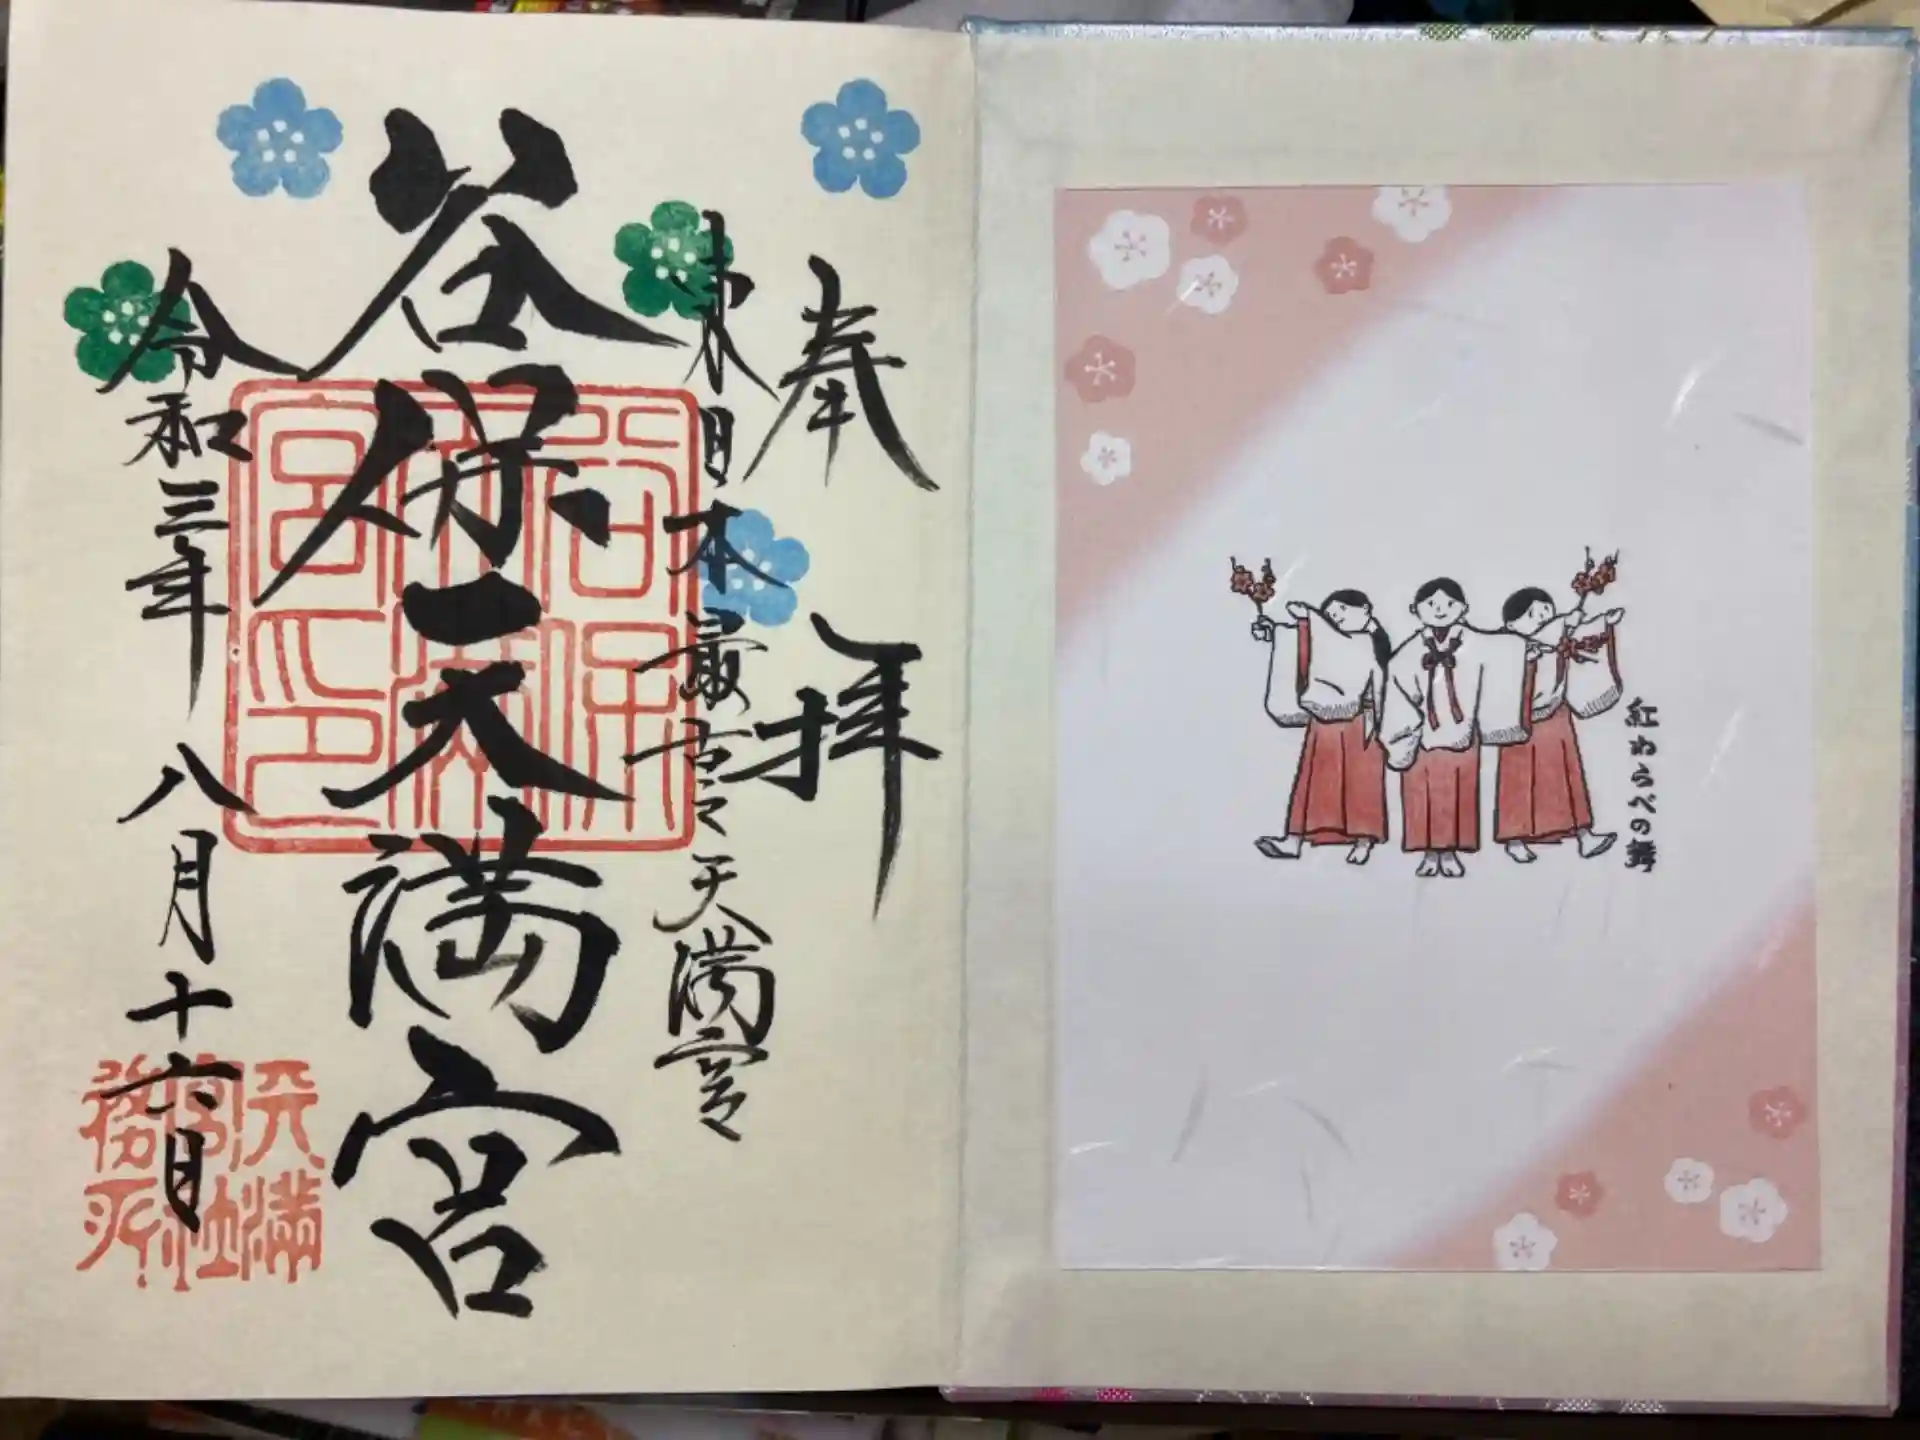 紅わらべの舞
奉拝
東日本最古之天満宮
谷保天満宮
令和三年八月十六日
谷保天満宮印
天満宮社務所